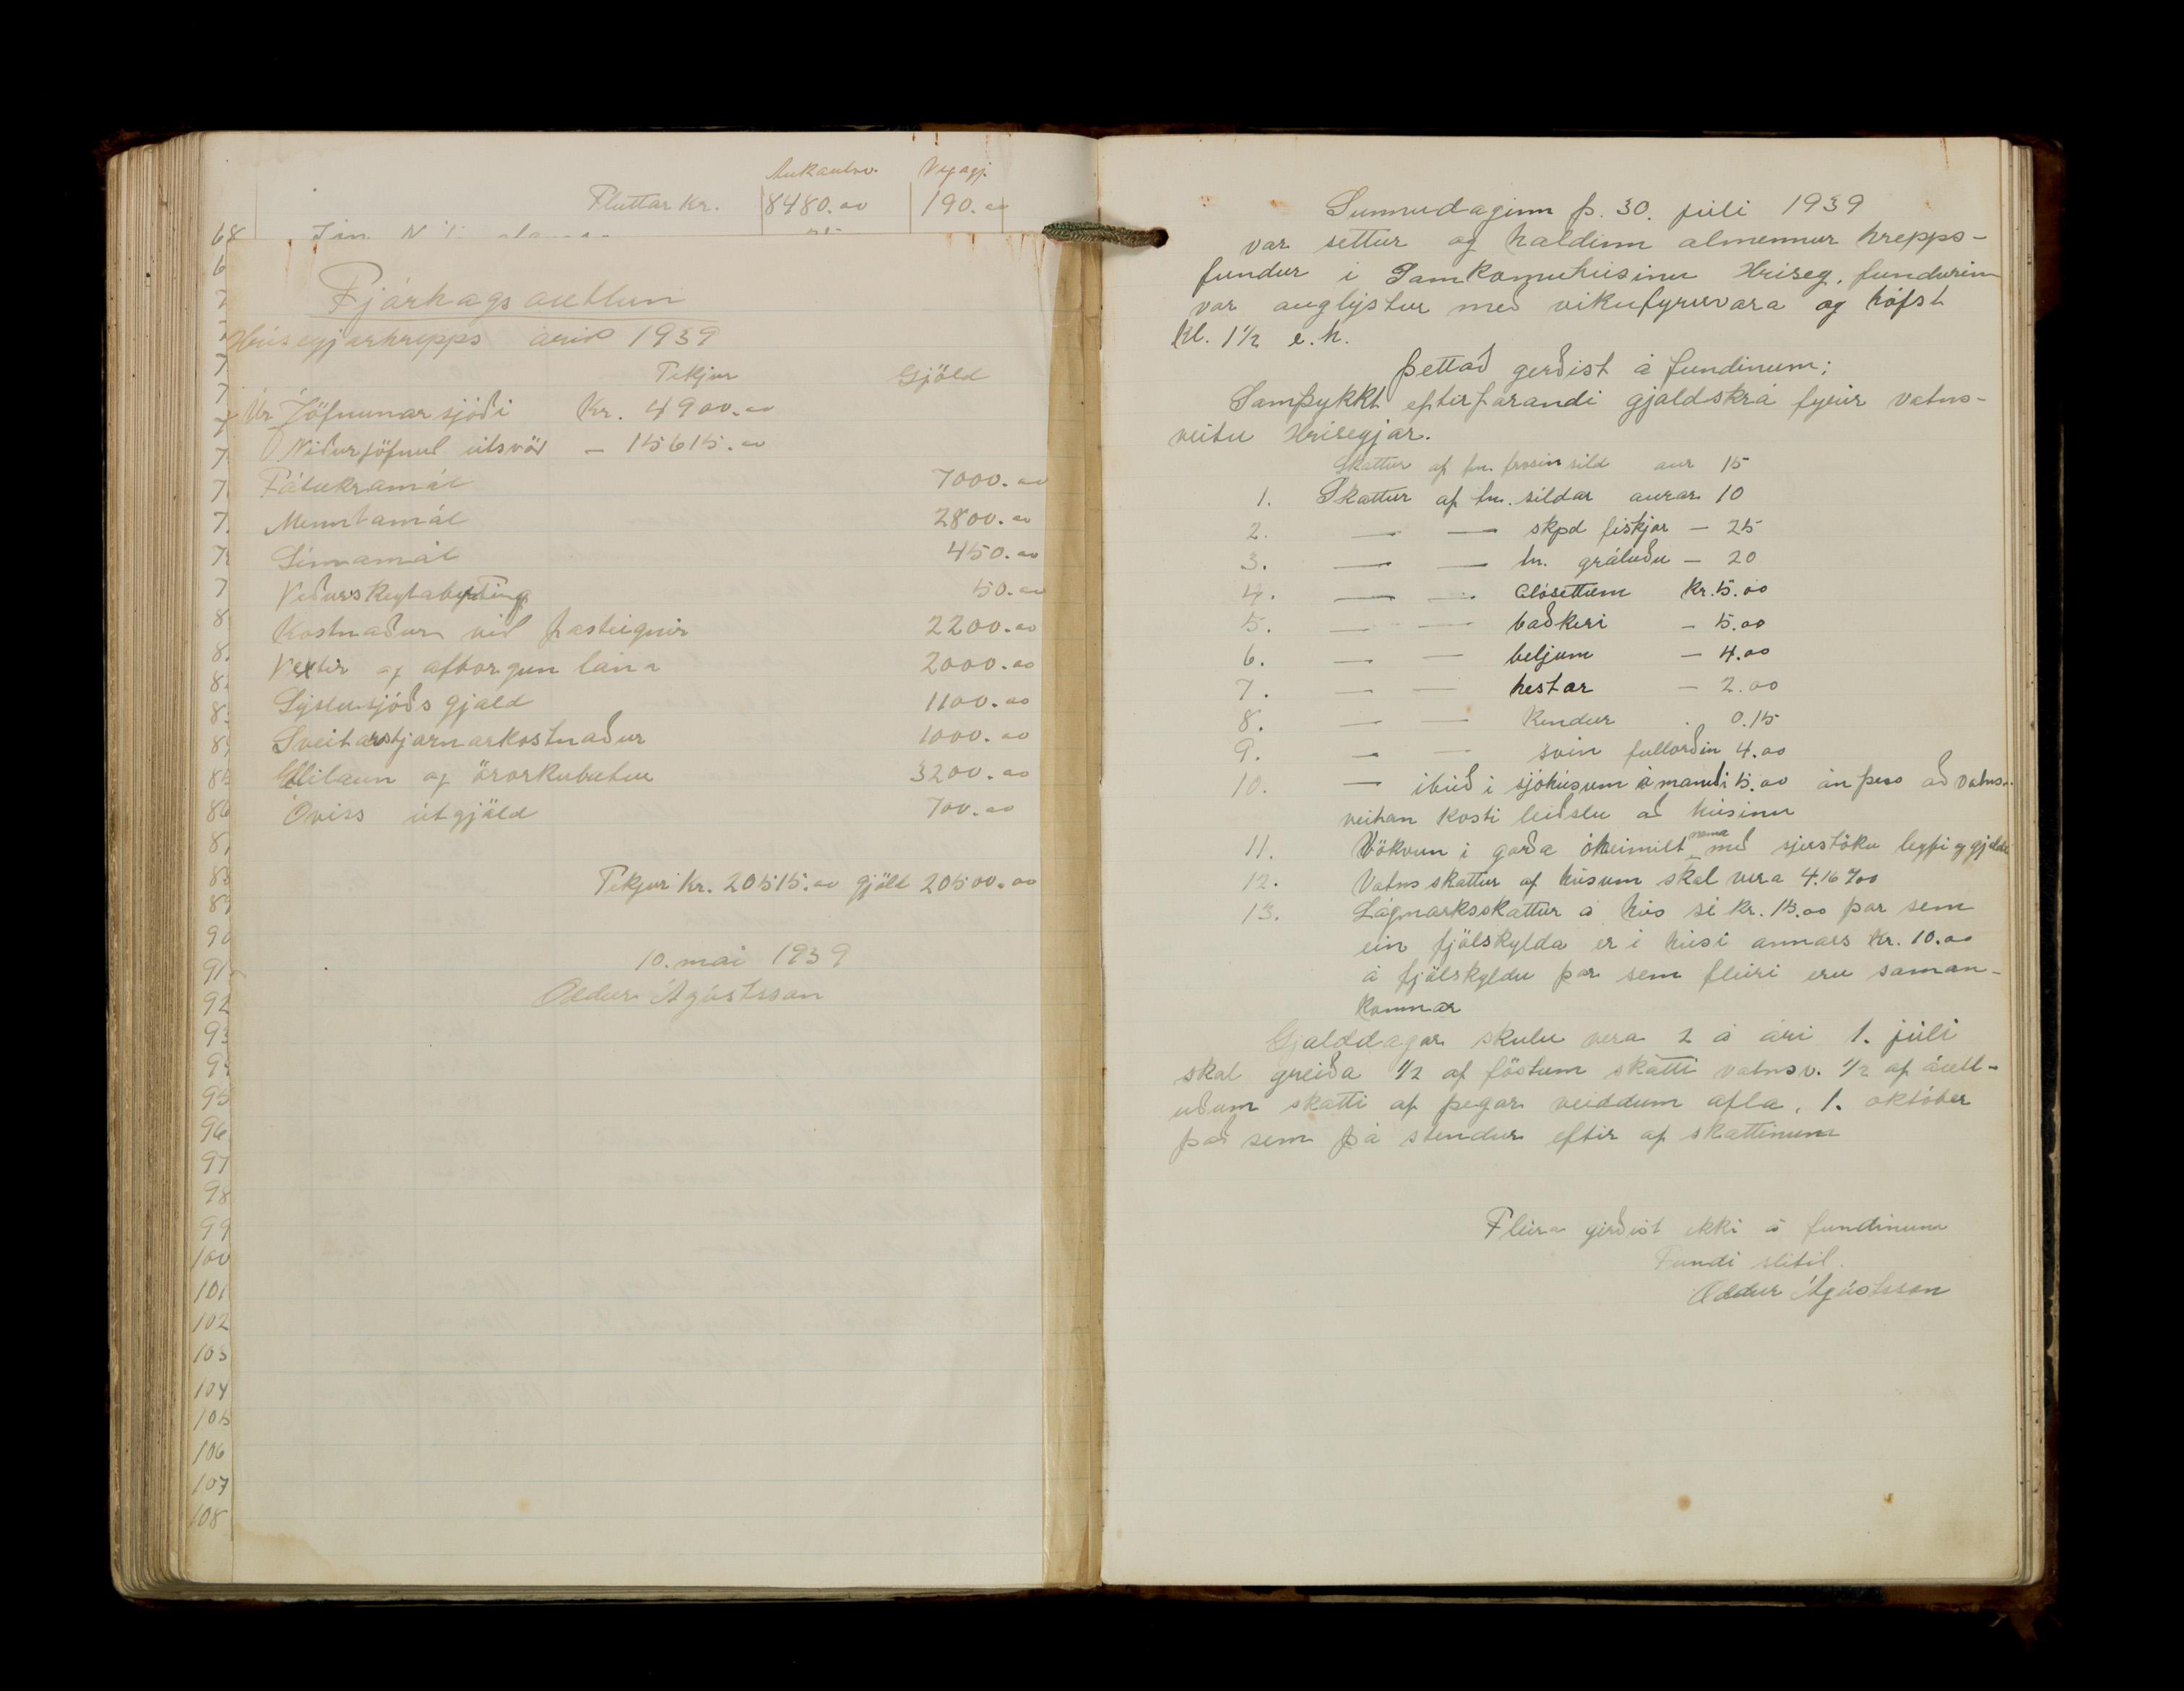 Aukaútsv. Vegagj.
Fluttar kr. 8480.00 190.00
68
Fjárhagsáætlun
Hríseyjarhrepps árið 1939
Tekjur Gjöld
Úr Jöfnunarsjóði Kr. 4900.00
Niðurjöfnuð útsvör — 15615.00
Fátækramál 7000.00
Menntamál 2800.00
Símamál 450.00
Veðurskeytabirting 50.00
Kostnaður við fasteignir 2200.00
Vextir og afborgun lána 2000.00
Sýslusjóðsgjald 1100.00
Sveitarstjórnarkostnaður 1000.00
Ellilaun og örorkubætur 3200.00
Óviss útgjöld 700.00
Tekjur kr. 20515.00 gjöld 20500.00
10. maí 1939
Oddur Ágústsson
86
88
90
91
92
93
95
96
97
98
99
100
101
102
103
104
105
106
107
108
Sunnudaginn þ. 30. júlí 1939
var settur og haldinn almennur hrepps-
fundur í Samkomuhúsinu Hrísey. fundurinn
var auglýstur með vikufyrirvara og hófst
kl. 1 1/2 e.h.
Þettað gerðist á fundinum;
Samþykkt eftirfarandi gjaldskrá fyrir vatns-
veitu Hríseyjar.
Skattur af tn. frosin síld aur 15
1. Skattur af tn. síldar aurar 10
2. — — skpd fiskjar — 25
3. — — tn. grálúðu — 20
4. — — Closettum Kr. 5.00
5. — — baðkeri — 5.00
6. — — beljum — 4.00
7. — — hestar — 2.00
8. — — Kindur . 0.15
9. — — svín fullorðin 4.00
10. — íbúð í sjóhúsum á mánuði 5.00 án þess að vatns-
veitan kosti leiðslu að húsinu
11. Vökvun í garða óheimilt nema með sjerstöku leyfi og gjaldi
12. Vatnsskattur af húsum skal vera 4.16 ‰
13. Lágmarksskattur á hús sé kr. 15.00 þar sem
ein fjölskylda er í húsi annars kr. 10.00
á fjölskyldu þar sem fleiri eru saman-
komnar
Gjalddagar skulu vera 2 á ári 1. júlí
skal greiða 1/2 af föstum skatti vatnsv. 1/2 af áætl-
uðum skatti af þegar veiddum afla, 1. október
það sem þá stendur eftir af skattinum
Fleira gerðist ekki á fundinum
Fundi slitið.
Oddur Ágústsson